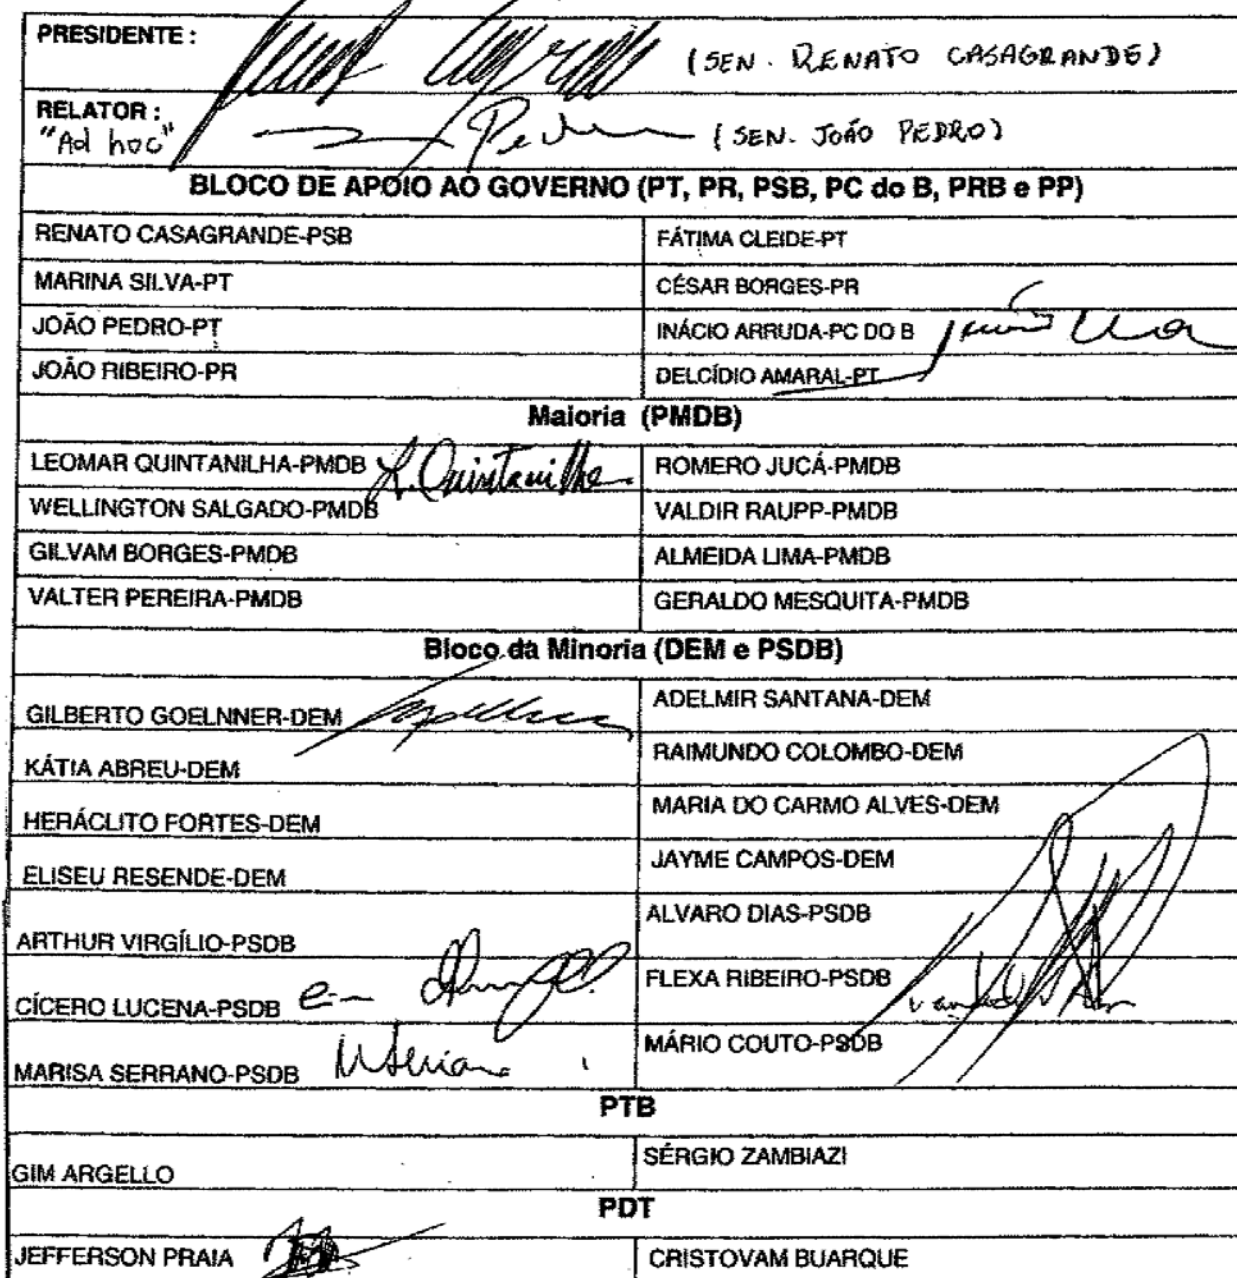 PRESIDENTE :
(SEN. RENATO CASAGRANDE)
RELATOR :
"Ad hoc"
Pedro (SEN. JOÃO PEDRO)
BLOCO DE APOIO AO GOVERNO (PT, PR, PSB, PC do B, PRB e PP)
RENATO CASAGRANDE-PSB
FÁTIMA CLEIDE-PT
MARINA SILVA-PT
CÉSAR BORGES-PR
JOÃO PEDRO-PT
INÁCIO ARRUDA-PC DO B
JOÃO RIBEIRO-PR
DELCÍDIO AMARAL-PT
Maioria (PMDB)
LEOMAR QUINTANILHA-PMDB L. Quintanilha
ROMERO JUCÁ-PMDB
WELLINGTON SALGADO-PMDB
VALDIR RAUPP-PMDB
GILVAM BORGES-PMDB
ALMEIDA LIMA-PMDB
VALTER PEREIRA-PMDB
GERALDO MESQUITA-PMDB
Bloco da Minoria (DEM e PSDB)
GILBERTO GOELNNER-DEM
ADELMIR SANTANA-DEM
KÁTIA ABREU-DEM
RAIMUNDO COLOMBO-DEM
HERÁCLITO FORTES-DEM
MARIA DO CARMO ALVES-DEM
ELISEU RESENDE-DEM
JAYME CAMPOS-DEM
ARTHUR VIRGÍLIO-PSDB
ALVARO DIAS-PSDB
CÍCERO LUCENA-PSDB
FLEXA RIBEIRO-PSDB
MARISA SERRANO-PSDB
MÁRIO COUTO-PSDB
PTB
GIM ARGELLO
SÉRGIO ZAMBIAZI
PDT
JEFFERSON PRAIA
CRISTOVAM BUARQUE